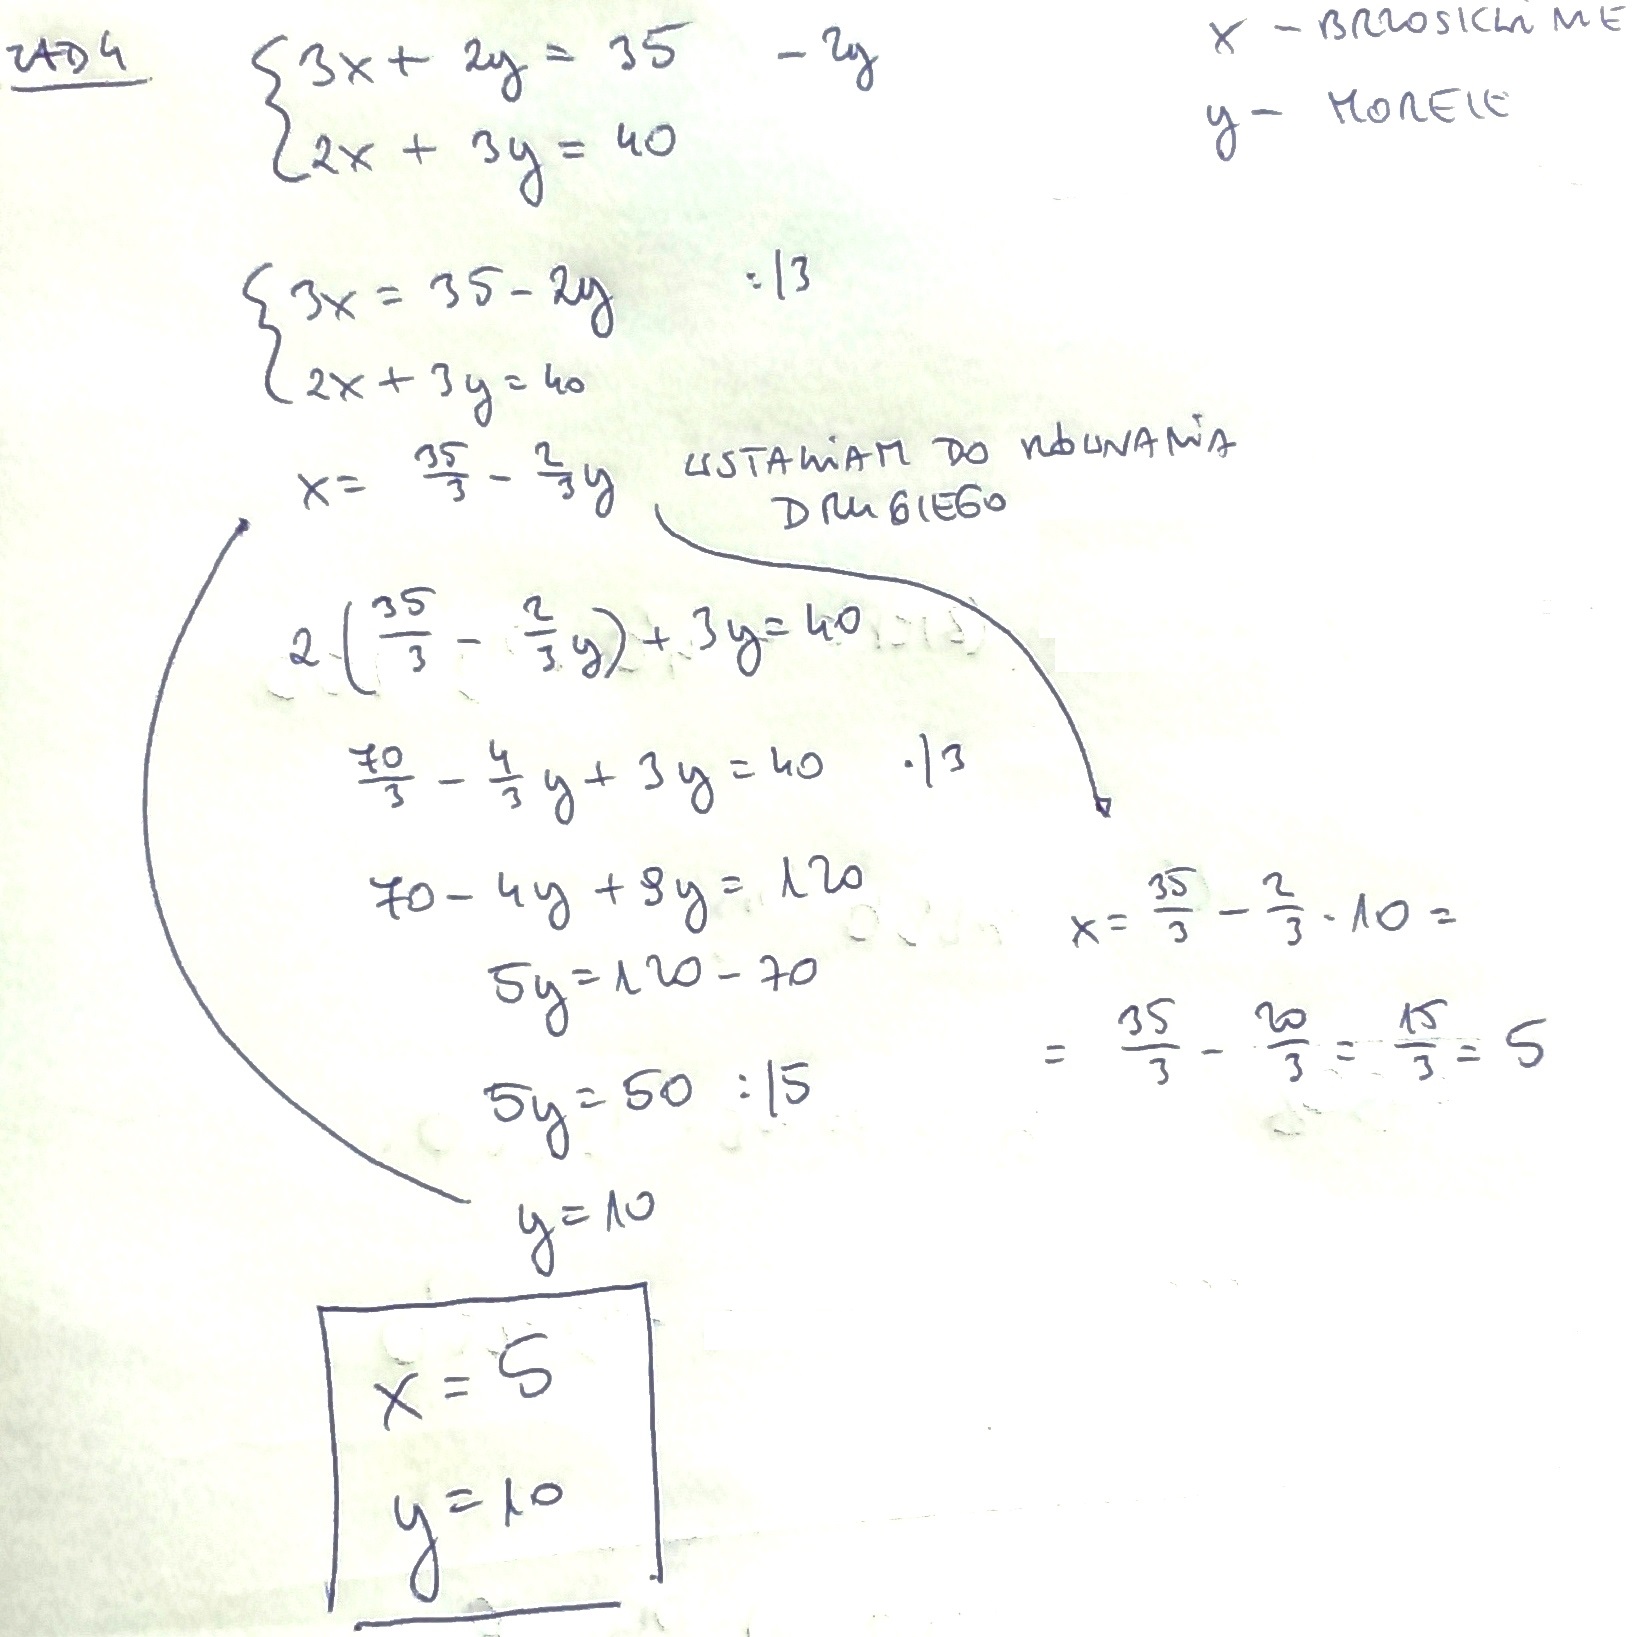 ZAD 4
{ 3x + 2y = 35 - 2y
2x + 3y = 40
x - BRZOSKWINIE
y - MORELE
{ 3x = 35 - 2y :/3
2x + 3y = 40
x = 35/3 - 2/3 y WSTAWIAM DO RÓWNANIA
DRUGIEGO
2·(35/3 - 2/3 y) + 3y = 40
70/3 - 4/3 y + 3y = 40 ·/3
70 - 4y + 9y = 120
5y = 120 - 70
5y = 50 :/5
y = 10
x = 35/3 - 2/3 · 10 =
= 35/3 - 20/3 = 15/3 = 5
x = 5
y = 10